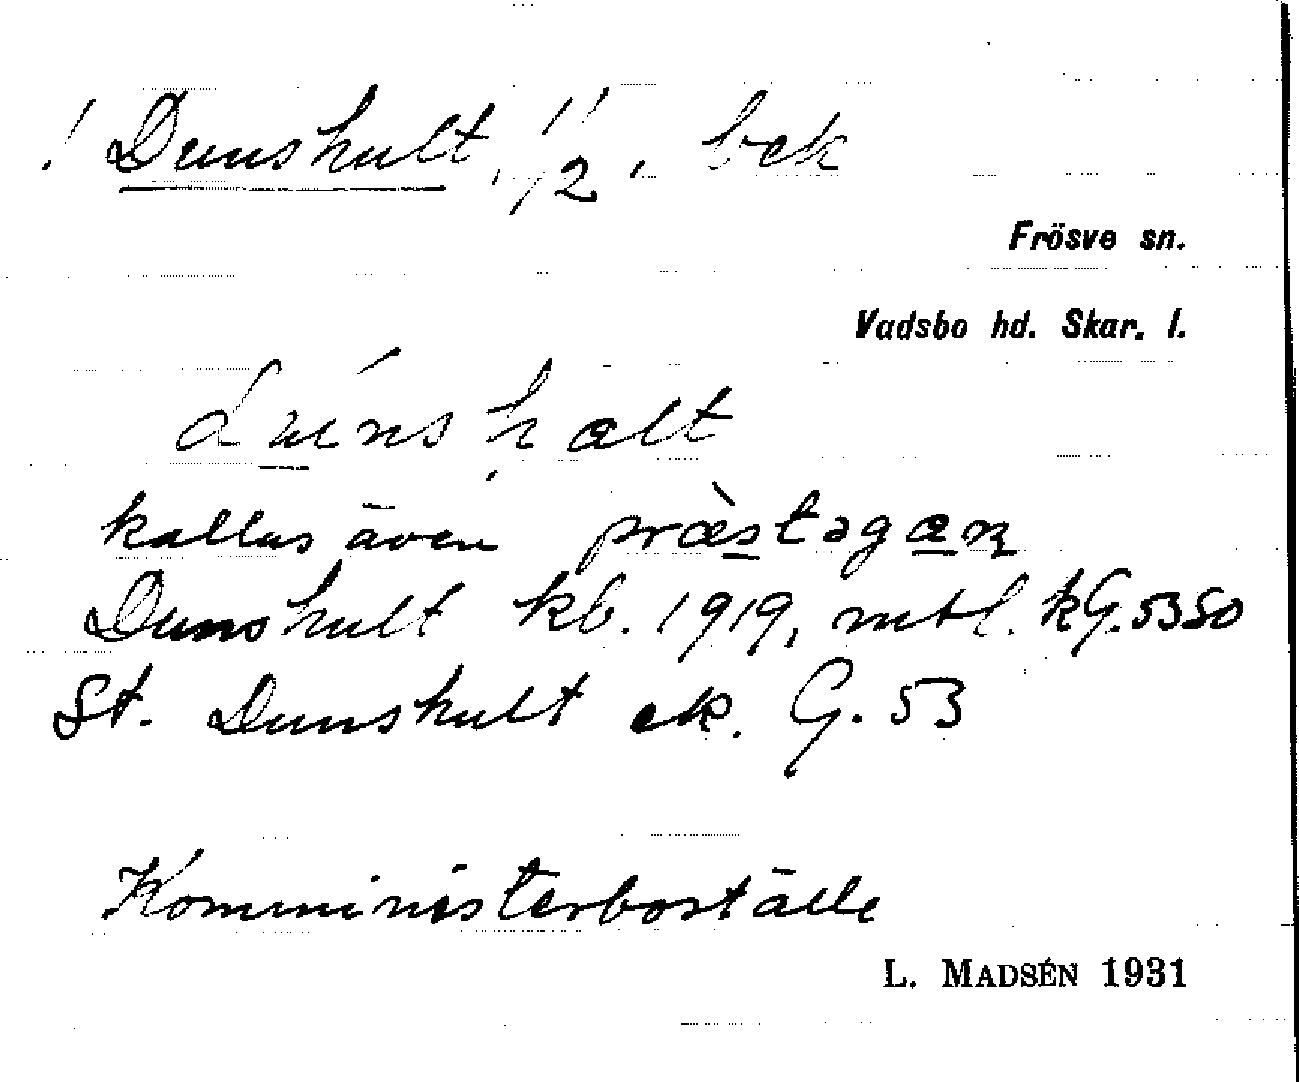 ! Dunshult, 1/2, bek
Frösve sn.
Vadsbo hd. Skar. l.
kallas även præstəgan
Dunshult kb. 1919, mtl. kG. 53 So
St. Dunshult ek. G. 53
Komministerboställe
L. MADSÉN 1931